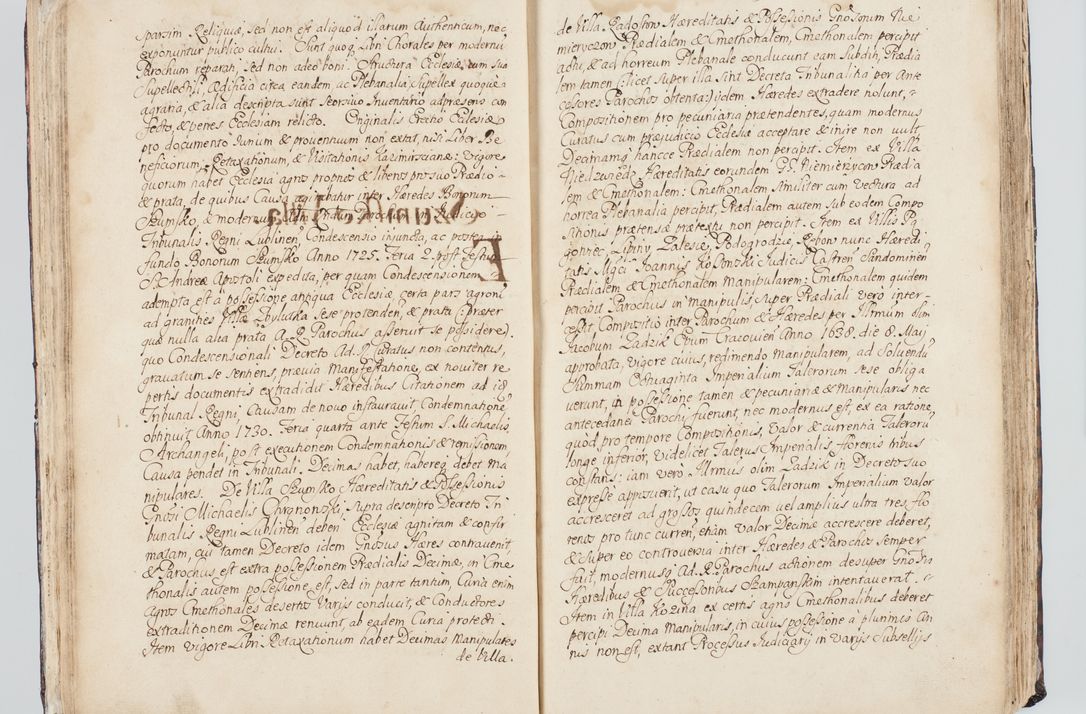 sparsim Reliquiæ, sed non est aliquod illarum Authenticum, nec
exponuntur publico cultui. Sunt quoq Libri Chorales per modernũ
Parochum reparati, sed non adeo boni. Structura Ecclesiæ, cum sua
Supellectili, ædificia circa eandem, ac Plebanalia, Supellex quoquæ
agraria, & alia descripta sunt seorsivo Inventario adpræsens con
fecto, & penes Ecclesiam relicto. Originalis Erectio Ecclesiæ
pro documento Jurium & proventuum non extat, nisi Liber Be
neficiorum, Retaxationum, & Visitationis Kazimirscianæ: vigore
quorum habet Ecclesia agros proprios & liberos pro suo Prædio
& prata, de quibus Causa agitabatur inter Hæredes Bonorum
Szumsko, & modernum Parochum
Tribunalis Regni Lublinen Condescensio injuncta, ac postea in
fundo Bonorum Szumsko Anno 1725. Feria 2. post Festum
S. Andreæ Apostoli expedita, per quam Condescensionem
adempta est à possessione antiqua Ecclesiæ, certa pars agroru
ad granities Villæ Zbylutka sese protendens, & prata (: præter
quæ nulla alia prata A. R. Parochus asseruit se possidere).
quo Condescensionali Decreto Ad. R. Curatus non contentus,
gravatum se sentiens, prævia Manifestatione, ex noviter re
pertis documentis extradidit Hæredibus Citationem ad id
Tribunal Regni, Causam de novo instauravit, Condemnatione
obtinuit Anno 1730. Feria quarta ante Festum S. Michaelis
Archangeli, post executionem Condemnationis & remissionem,
Causa pendet in Tribunali. Decimas habet, habereq debet Ma
nipulares. De Villa Szumsko Hæreditatis & Possessionis
Gnosi Michaelis supra descripto Decreto Tri
bunalis Regni Lublinen deberi Ecclesiæ agnitam & confir
matam, cui tamen Decreto idem Gnosus Hæres contravenit,
& Parochus est extra possessionem Prædialis Decimæ, in Cme
thonalis autem possessione est, sed in parte tantum, Curia enim
Agros Cmethonales desertos varijs conducit, & Conductores
extraditionem Decimæ renuunt, ab eadem Curia protecti.
Item vigore Libri Retaxationum habet Decimas Manipulares
de Villa.
de Villa. Radostow Hæreditatis & Possessionis Gnosorum Nie
mieryczow Prædialem & Cmethonalem, Cmethonalem percipit
actu, & ad horreum Plebanale conducunt eam Subditi, Prædia
lem tamen (: licet super illa sint Decreta Tribunalitia per Ante
cessores Parochos obtenta:) ijdem Hæredes extradere nolunt,
Compositionem pro pecuniaria prætendentes, quam modernus
Curatus cum præjudicio Ecclesiæ acceptare & inire non vult
Decimamq hancce Prædialem non percipit. Item ex Villa
Niedzwiedz Hæreditatis eorundem GG. Niemieryczow Prædia
lem & Cmethonalem: Cmethonalem similiter cum vectura ad
horrea Plebanalia percipit, Prædialem autem sub eodem Compo
sitionis prætensæ prætextu non percipit. Item ex Villis Po
gorzec, Lipiny, Zalesie, Podogrodzie, Reben nunc Hæredi
tatis Mgci Joannis Judicis Castren Sandomirien
Prædialem & Cmethonalem Manipularem: Cmethonalem quidem
percipit Parochus in manipulis, super Prædiali verò inter-
cessit Compositio inter Parochum & Hæredes per Illrmum olim
Jacobum Zadzik Epum Cracovien Anno 1638. die 8. Maij
approbata, vigore cuius, redimendo Manipularem, ad Solvendũ
Summam Octuaginta Imperialium Talerorum sese obliga
verunt, in possessione tamen & pecuniariæ & Manipularis nec
antecedanei Parochi fuerunt, nec modernus est, ex ea ratione,
quod pro tempore Compositionis, valor & currentia Talerorũ
longe inferior, videlicet Talerus Imperialis Florenis tribus
constans: iam verò Illrmus olim Zadzik in Decreto suo
expresse apposuerit, ut casu quo Talerorum Imperialium valor
accresceret ad grossos quindecem vel amplius ultra tres flo
renos pro tunc curren, etiam valor Decimæ accrescere deberet,
& super eo controversia inter Hæredes & Parochos semper
fuit, modernusq Ad. R. Parochus actionem desuper Gnosis
Hæredibus & Successoribus Szampanskim intentaverat.
Item in Villa Kozina ex certis agris Cmethonalibus deberet
percipi Decima Manipularis, in cuius possessione a plurimis an
nis non est, extant Processus Judiciarij in varijs Subsellijs